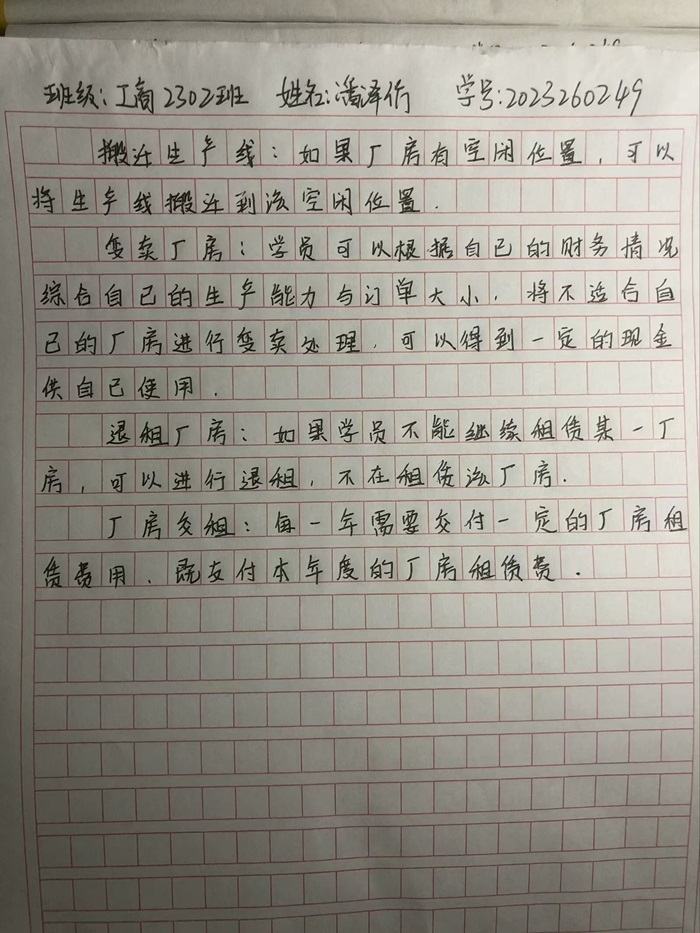 班级:工商2302班 姓名:潘泽 学号:2023260249
搬迁生产线:如果厂房有空闲位置,可以
将生产线搬迁到该空闲位置.
变卖厂房:学员可以根据自己的财务情况
综合自己的生产能力与订单大小.将不适合自
己的厂房进行变卖处理.可以得到一定的现金
供自己使用.
退租厂房:如果学员不能继续租赁某一厂
房,可以进行退租,不在租赁该厂房.
厂房交租:每一年需要交付一定的厂房租
赁费用.既支付本年度的厂房租赁费.